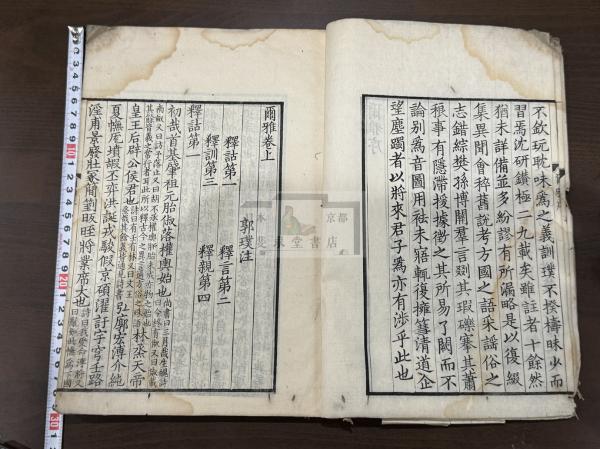 不欽玩耽味為之義訓璞不揆檮昧少而
習焉沈研鑽極二九載矣雖註者十餘然
猶未詳備並多紛謬有所漏略是以復綴
集異聞會稡舊說考方國之語采謠俗之
志錯綜樊孫博關羣言剟其瑕礫搴其蕭
稂事有隱滯援據徵之其所易了闕而不
論別為音圖用袪未寤輒復擁篲清道企
望塵躅者以將來君子為亦有涉乎此也
爾雅卷上
郭璞注
釋詁第一 釋言第二
釋訓第三 釋親第四
釋詁第一
初哉首基肇祖元胎俶落權輿始也
林烝天帝
皇王后辟公侯君也
弘廓宏溥介純
夏幠厖墳嘏丕弈洪誕戎駿假京碩濯訏宇穹壬路
淫甫景廢壯冢簡箌昄晊將業席大也
京都